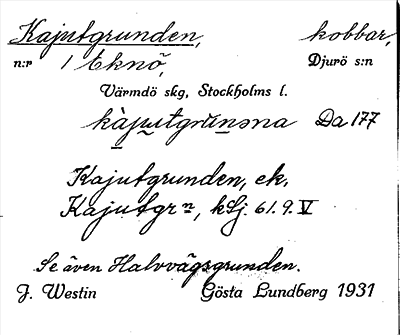 Kajutgrunden, kobbar,
n:r 1 Eknö, Djurö s:n
Värmdö skg, Stockholms l.
kàjutgrunəna Da 177
Kajutgrunden, ek.
Kajutgr n, kSj. 61.9.V
Se även Halvvägsgrunden.
J. Westin Gösta Lundberg 1931